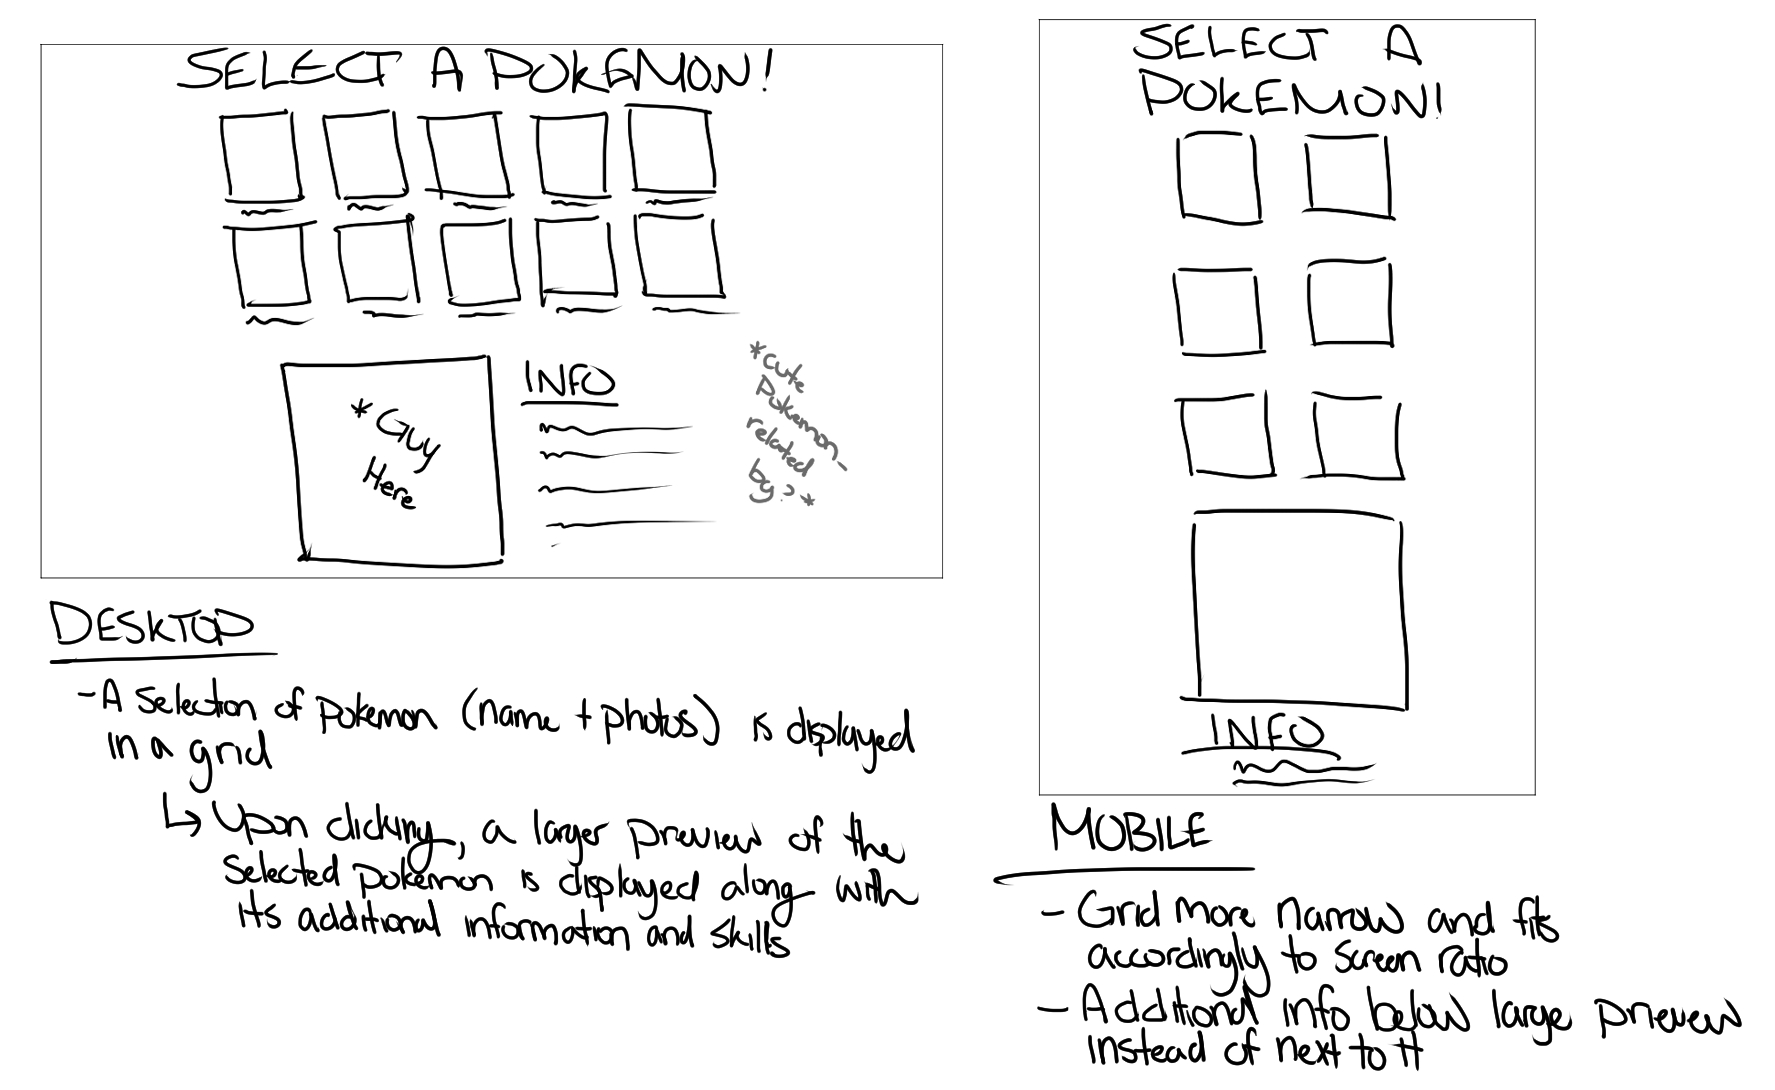 SELECT A POKEMON!
INFO
* Guy
Here
*cute
Pokemon-
related
bg?*
DESKTOP
- A selection of pokemon (name + photos) is displayed
in a grid
↳ Upon clicking, a larger preview of the
selected pokemon is displayed along with
its additional information and skills
SELECT A
POKEMON!
INFO
MOBILE
- Grid more narrow and fits
accordingly to screen ratio
- Additional info below large preview
instead of next to it